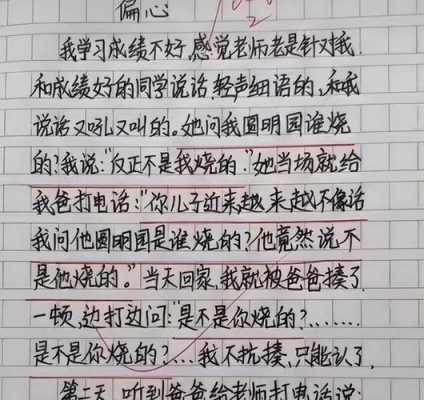 偏心
我学习成绩不好,感觉老师老是针对我.
和成绩好的同学说话,轻声细语的,和我
说话又吼又叫的。她问我圆明园谁烧
的?我说:“反正不是我烧的.”她当场就给
我爸打电话:“你儿子近来越来越不像话
我问他圆明园是谁烧的?他竟然说不
是他烧的。”当天回家,我就被爸爸揍了
一顿,边打边问:“是不是你烧的?......
是不是你烧的?...我不抗揍,只能认了,
第二天,听到爸爸给老师打电话说: